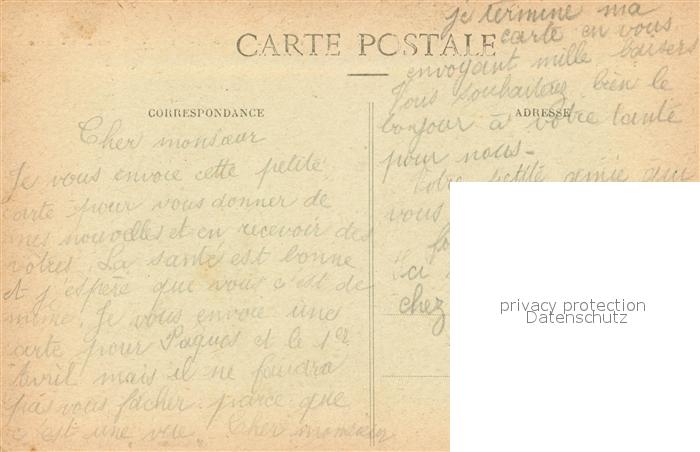 CARTE POSTALE
CORRESPONDANCE
Cher monsieur
Je vous envoie cette petite
carte pour vous donner de
mes nouvelles et en recevoir des
votres. La santé est bonne
et j'espère que vous c'est de
même. Je vous envoie une
carte pour Paques et le 1er
Avril mais il ne foudra
pas vous facher parce que
c'est une Cher monsieur
je termine ma
carte en vous
envoyant mille baisers
Vous souhaiterez bien le
ADRESSE
bonjour à votre tante
pour nous -
Votre petite amie qui
vous
chez
privacy protection
Datenschutz